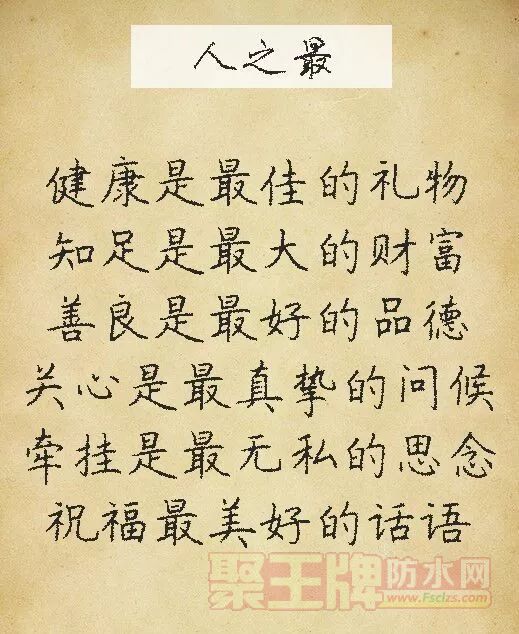 人之最
健康是最佳的礼物
知足是最大的财富
善良是最好的品德
关心是最真挚的问候
牵挂是最无私的思念
祝福最美好的话语
聚王牌防水网
www.Fsclzs.com